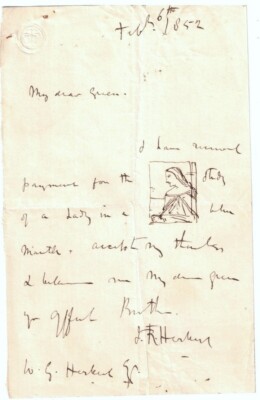 Feb. 6th 1852
My dear Green.
I have received
payment for the study
of a Lady in a blue
Mantle. accept my thanks
& believe me My dear green
yr affect Brother
J R Herbert
W. G. Herbert Esq.